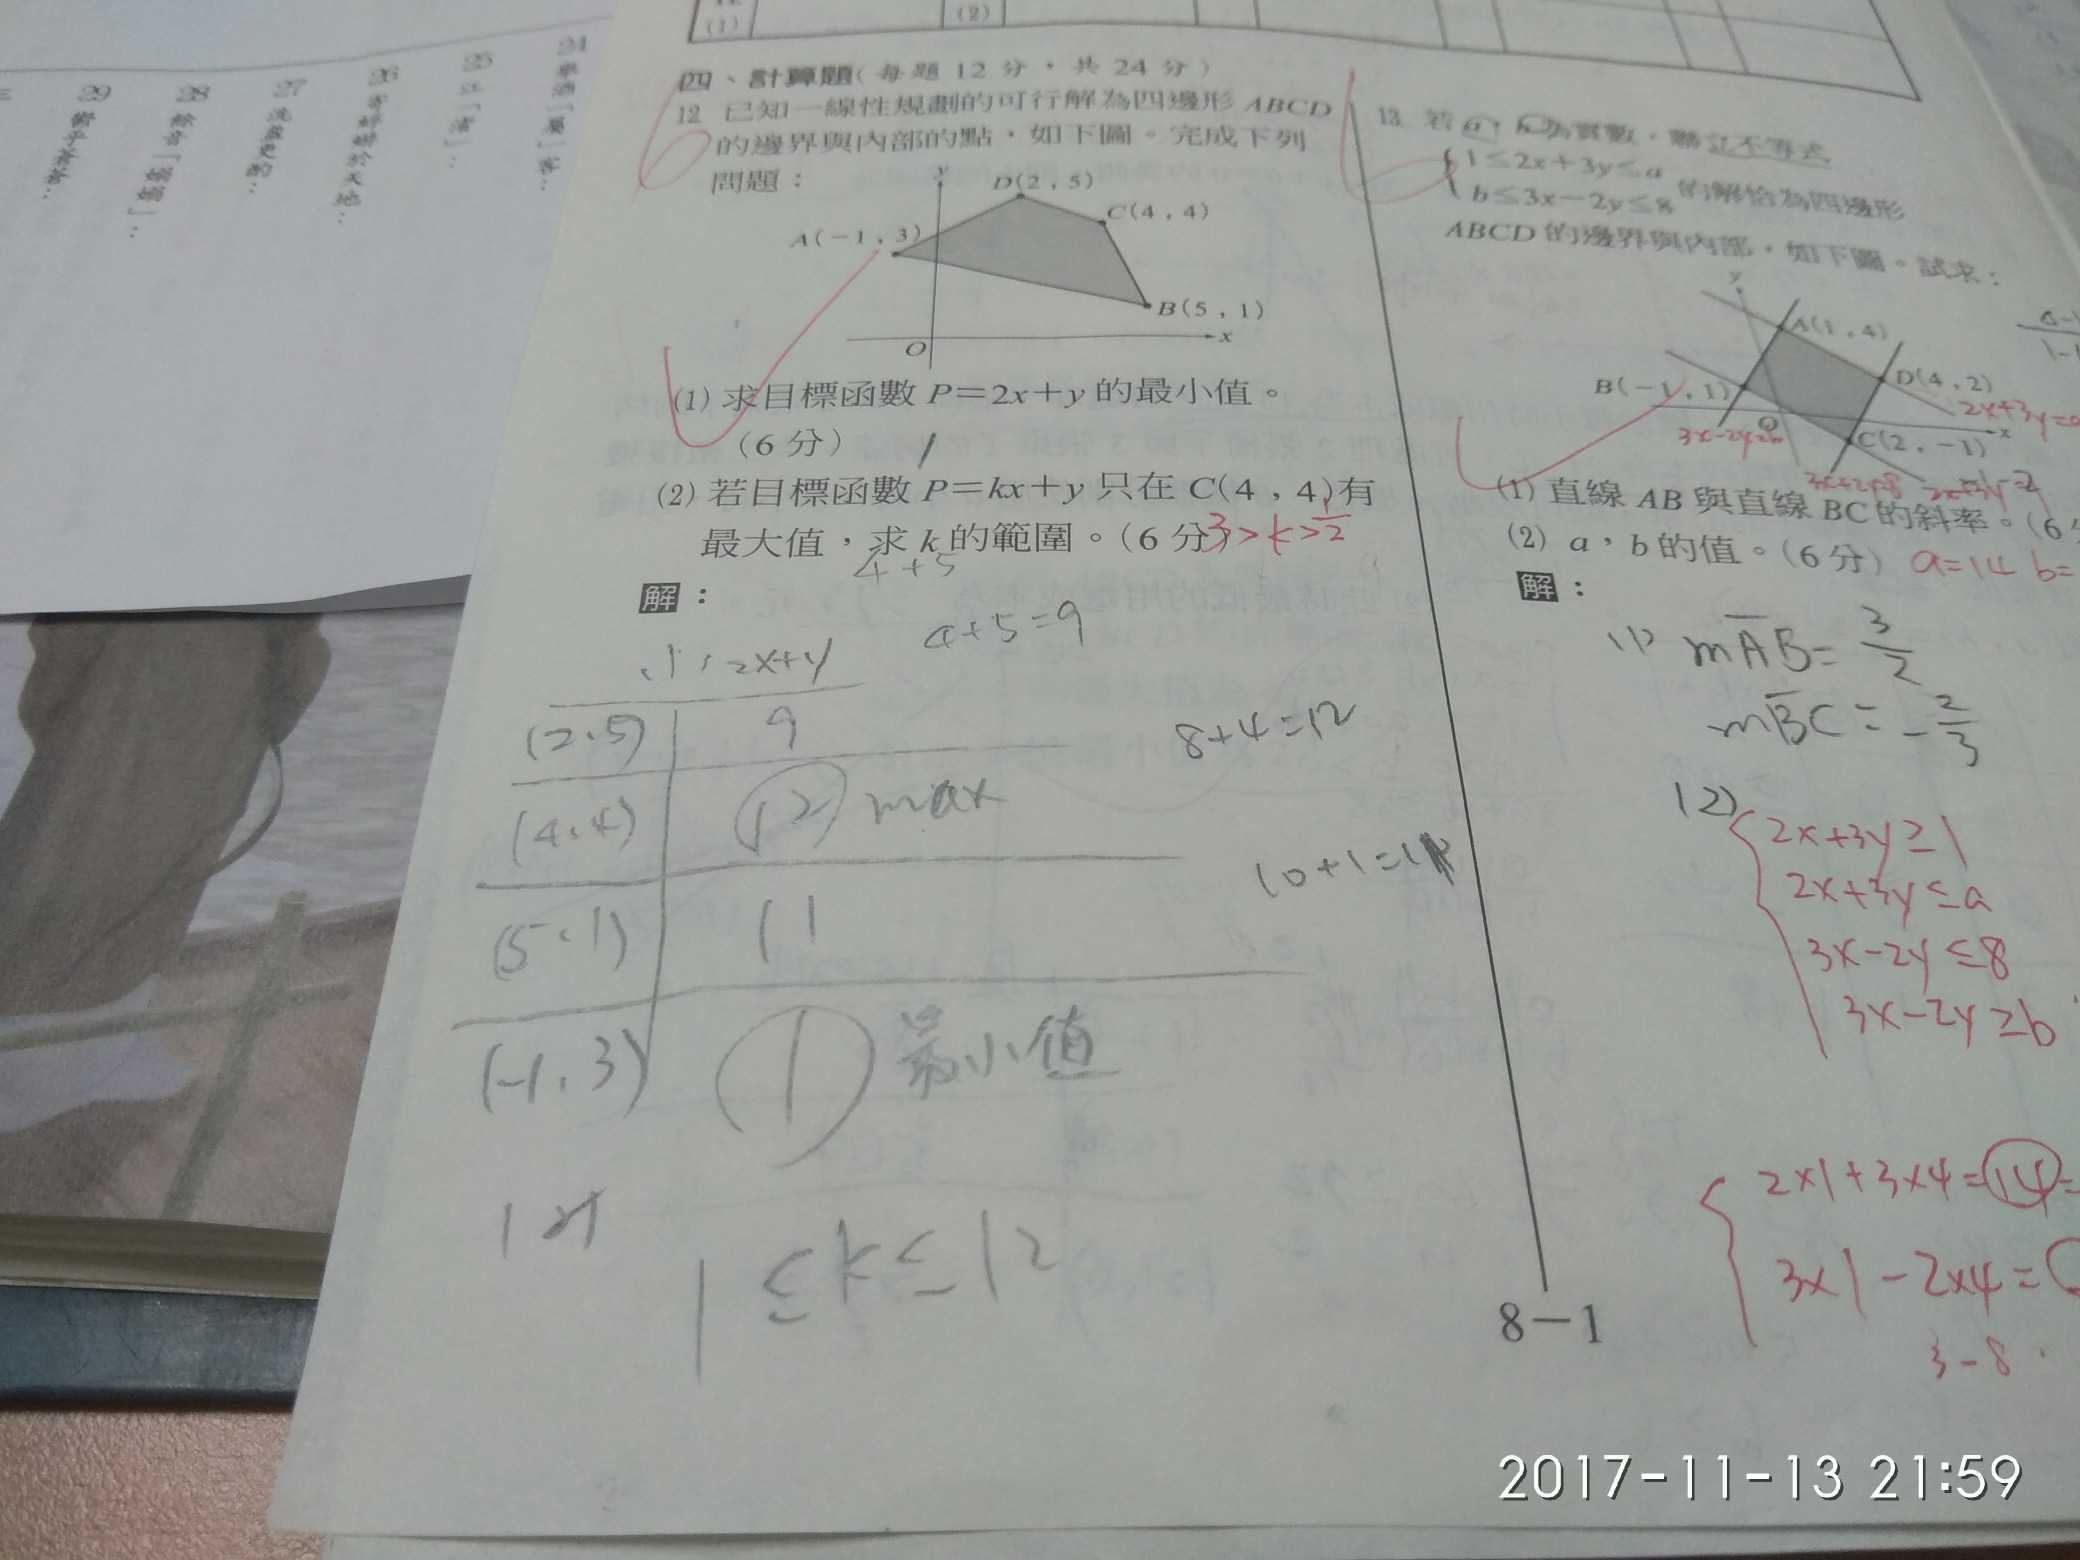 24
25
26
27
28
29
(1)
(2)
四、計算題(每題12分,共24分)
12 已知一線性規劃的可行解為四邊形ABCD
的邊界與內部的點,如下圖。完成下列
問題:
y
D(2,5)
C(4,4)
A(-1,3)
B(5,1)
O
x
(1) 求目標函數 P=2x+y 的最小值。
(6分) 1
(2) 若目標函數 P=kx+y 只在 C(4,4)有
最大值,求 k 的範圍。(6分) 3>k>1/2
4+5
解:
4+5=9
(1) 2x+y
(2,5) 9
8+4=12
(4,4) 12 max
10+1=1
(5,1) 11
(-1,3) 1 最小值
1≤k≤12
13 若 a,b為實數,聯立不等式
1≤2x+3y≤a
b≤3x-2y≤8 的解恰為四邊形
ABCD的邊界與內部,如下圖。試求:
y
A(1,4)
B(-1,1)
D(4,2)
2x+3y=a
O
x
3x-2y=b
C(2,-1)
(1) 直線AB與直線BC的斜率。(6
(2) a,b的值。(6分) a=14 b=
解:
(1) mAB=3/2
mBC=-2/3
(2)
2x+3y≥1
2x+3y≤a
3x-2y≤8
3x-2y≥b
2x1+3x4=14=
3x1-2x4=
3-8
8-1
2017-11-13 21:59